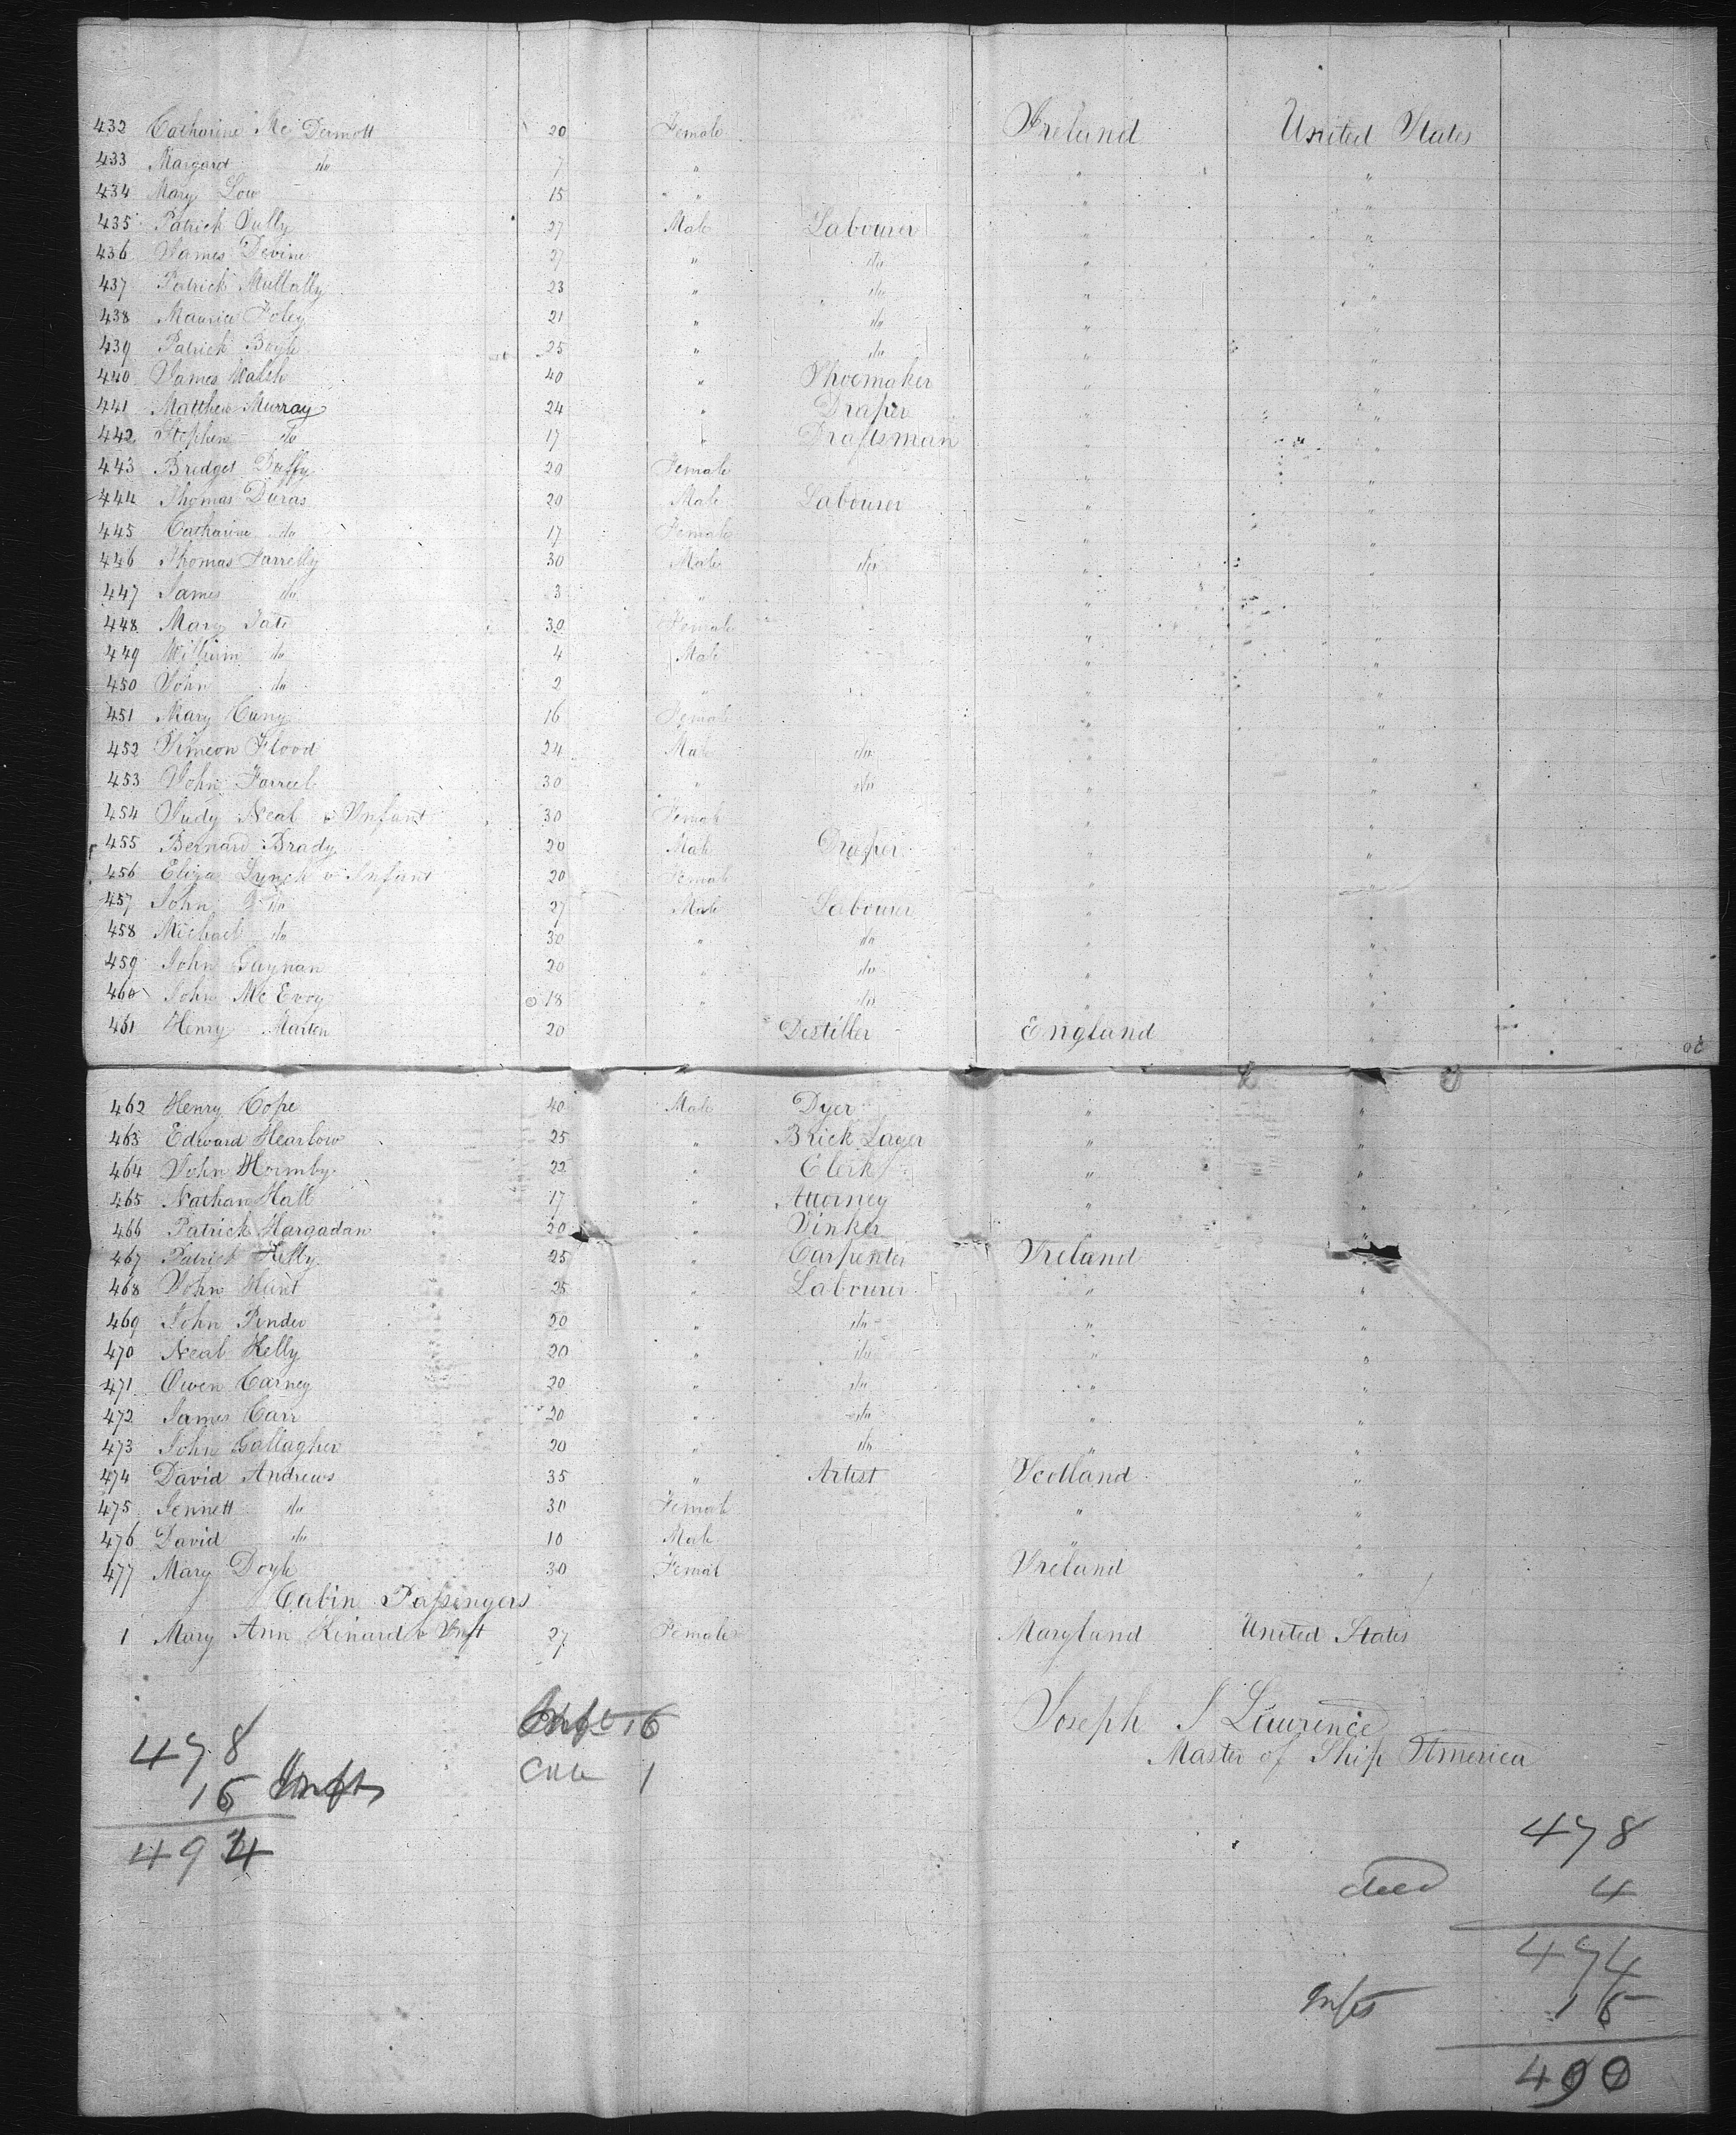 432 Catharine Mc Dermott 20 Female Ireland United States
433 Margard do 7 " " "
434 Mary Low 15 " " "
435 Patrick Tully 27 Male Labourer " "
436 James Devine 27 " do " "
437 Patrick Mullally 23 " do " "
438 Maurice Foley 21 " do " "
439 Patrick Boyle 25 " do " "
440 James Walsh 40 " Shoemaker " "
441 Matthew Murray 24 " Draper " "
442 Stephen do 17 " Draftsman " "
443 Bridget Duffy 20 Female " "
444 Thomas Duras 20 Male Labourer " "
445 Catharine do 17 Female " "
446 Thomas Farrelly 30 Male do " "
447 James do 3 " " "
448 Mary Tate 30 Female " "
449 William do 4 Male " "
450 John do 2 " " "
451 Mary Cuny 16 Female " "
452 Simeon Flood 24 Male do " "
453 John Farrell 30 " do " "
454 Judy Neal & Infant 30 Female " "
455 Bernard Brady 20 Male Draper " "
456 Eliza Lynch & Infant 20 Female " "
457 John do 27 Male Labourer " "
458 Michael do 30 " do " "
459 John Guynan 20 " do " "
460 John Mc Evoy 18 " do " "
461 Henry Marten 20 Distiller England "
462 Henry Cope 40 Male Dyer " "
463 Edward Hearlow 25 " Brick Layer " "
464 John Hormby 22 " Clerk " "
465 Nathan Hall 17 " Attorney " "
466 Patrick Hargadan 20 " Tinker "
467 Patrick Kelly 25 " Carpenter Ireland "
468 John Hunt 25 " Labourer " "
469 John Pender 20 " do " "
470 Neal Kelly 20 " do " "
471 Owen Carney 20 " do " "
472 James Carr 20 " do " "
473 John Gallagher 20 " do " "
474 David Andrews 35 " Artist Scotland "
475 Jennett do 30 Female " "
476 David do 10 Male " "
477 Mary Doyle 30 Female Ireland "
Cabin Passengers
1 Mary Ann Kinard & Inft 27 Female Maryland United States
Joseph J Lawrence
Master of Ship America
Inft 16
1
478
16 Infts
494
478
died 4
474
Infts 16
490